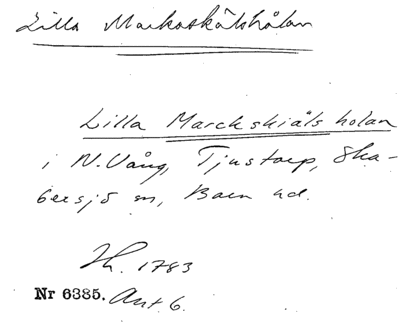 Lilla Markaskälshålan
Lilla Marckskiäls holan
i N. Vång, Tjustorp, Ska-
bersjö sn, Bara hd.
Th. 1783
Nr 6385. Ant. 6.